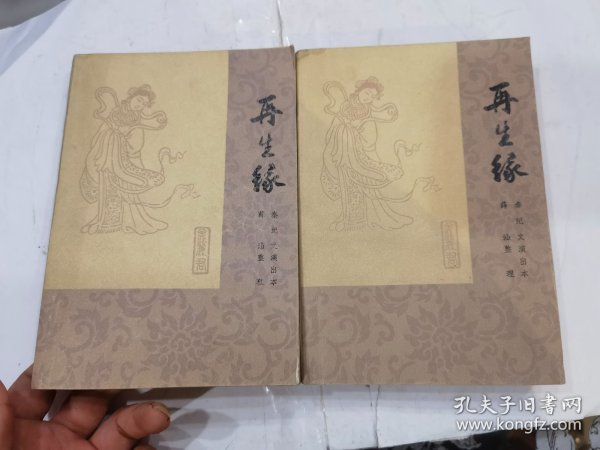 再生缘
秦纪文演出本
薛汕整理
再生缘
秦纪文演出本
薛汕整理
孔夫子旧书网
www.kongfz.com